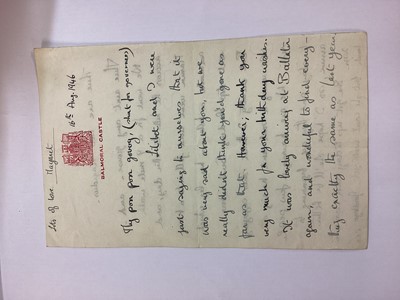 lots of love Margaret
16th Aug. 1946
BALMORAL CASTLE
My poor poor governy, (short for governess)
Lilibet and I were
just saying to ourselves, that it
was very sad about you, but we
really didn't think you'd gone as
far as that. However, thank you
very much for your birthday wishes.
It was lovely arriving at Ballater
again, and wonderful to find every-
thing exactly the same as last year,